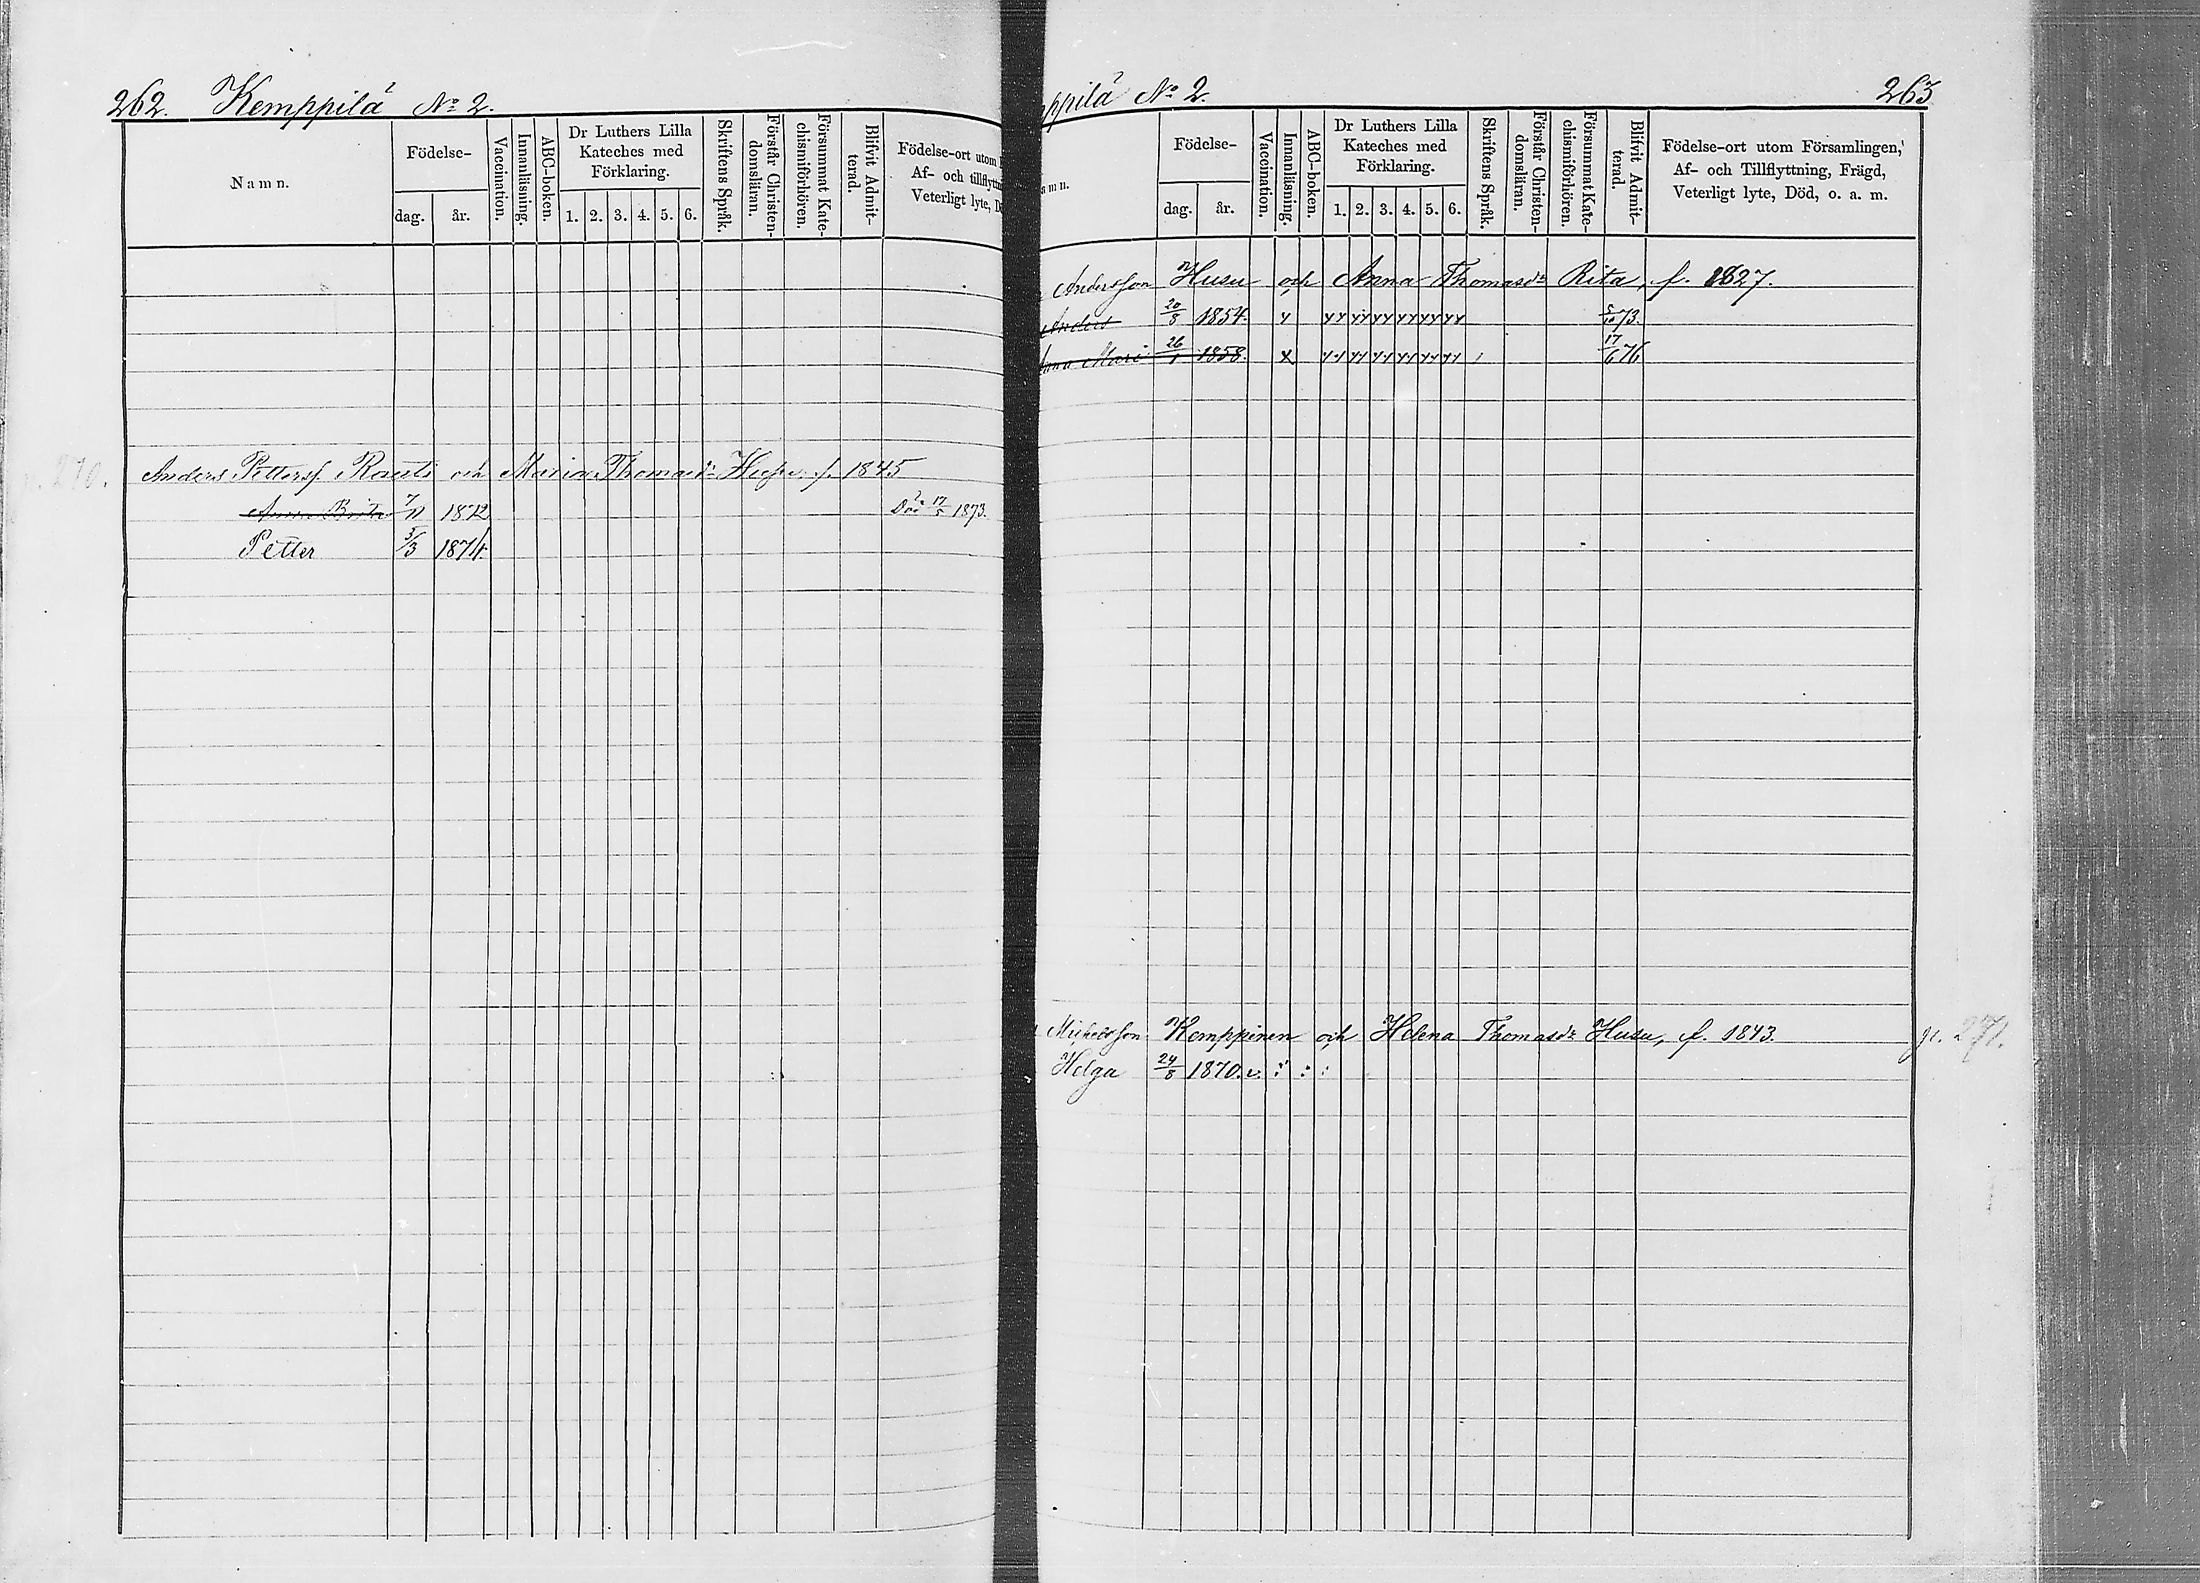 262. Kemppilä No 2.
Namn. Födelse- dag. år. Vaccination. Innanläsning. ABC-boken. Dr Luthers Lilla Kateches med Förklaring. 1. 2. 3. 4. 5. 6. Skriftens Språk. Förstår Christen-domsläran. Försummat Kate-chismiförhören. Blifvit Admit-terad. Födelse-ort utom Af- och tillflyttn Veterligt lyte, D
270.
Anders Petterss. Rousti och Maria Thomasdr Husu f. 1845
Anna Brita 7/11 1872 Död 17/5 1873.
Petter 5/3 1874.
ppilä No 2. 263
amn. Födelse- dag. år. Vaccination. Innanläsning. ABC-boken. Dr Luthers Lilla Kateches med Förklaring. 1. 2. 3. 4. 5. 6. Skriftens Språk. Förstår Christen-domsläran. Försummat Kate-chismiförhören. Blifvit Admit-terad. Födelse-ort utom Församlingen, Af- och Tillflyttning, Frägd, Veterligt lyte, Död, o. a. m.
Andersson Husu och Anna Thomasdr Rita, f. 1827.
Anders 20/8 1854. 5/10 73.
Anna Mari 26/1 1858. 17/6 76
Michelsson Kemppinen och Helena Thomasdr Husu, f. 1843. 271.
Helga 24/8 1870. v.